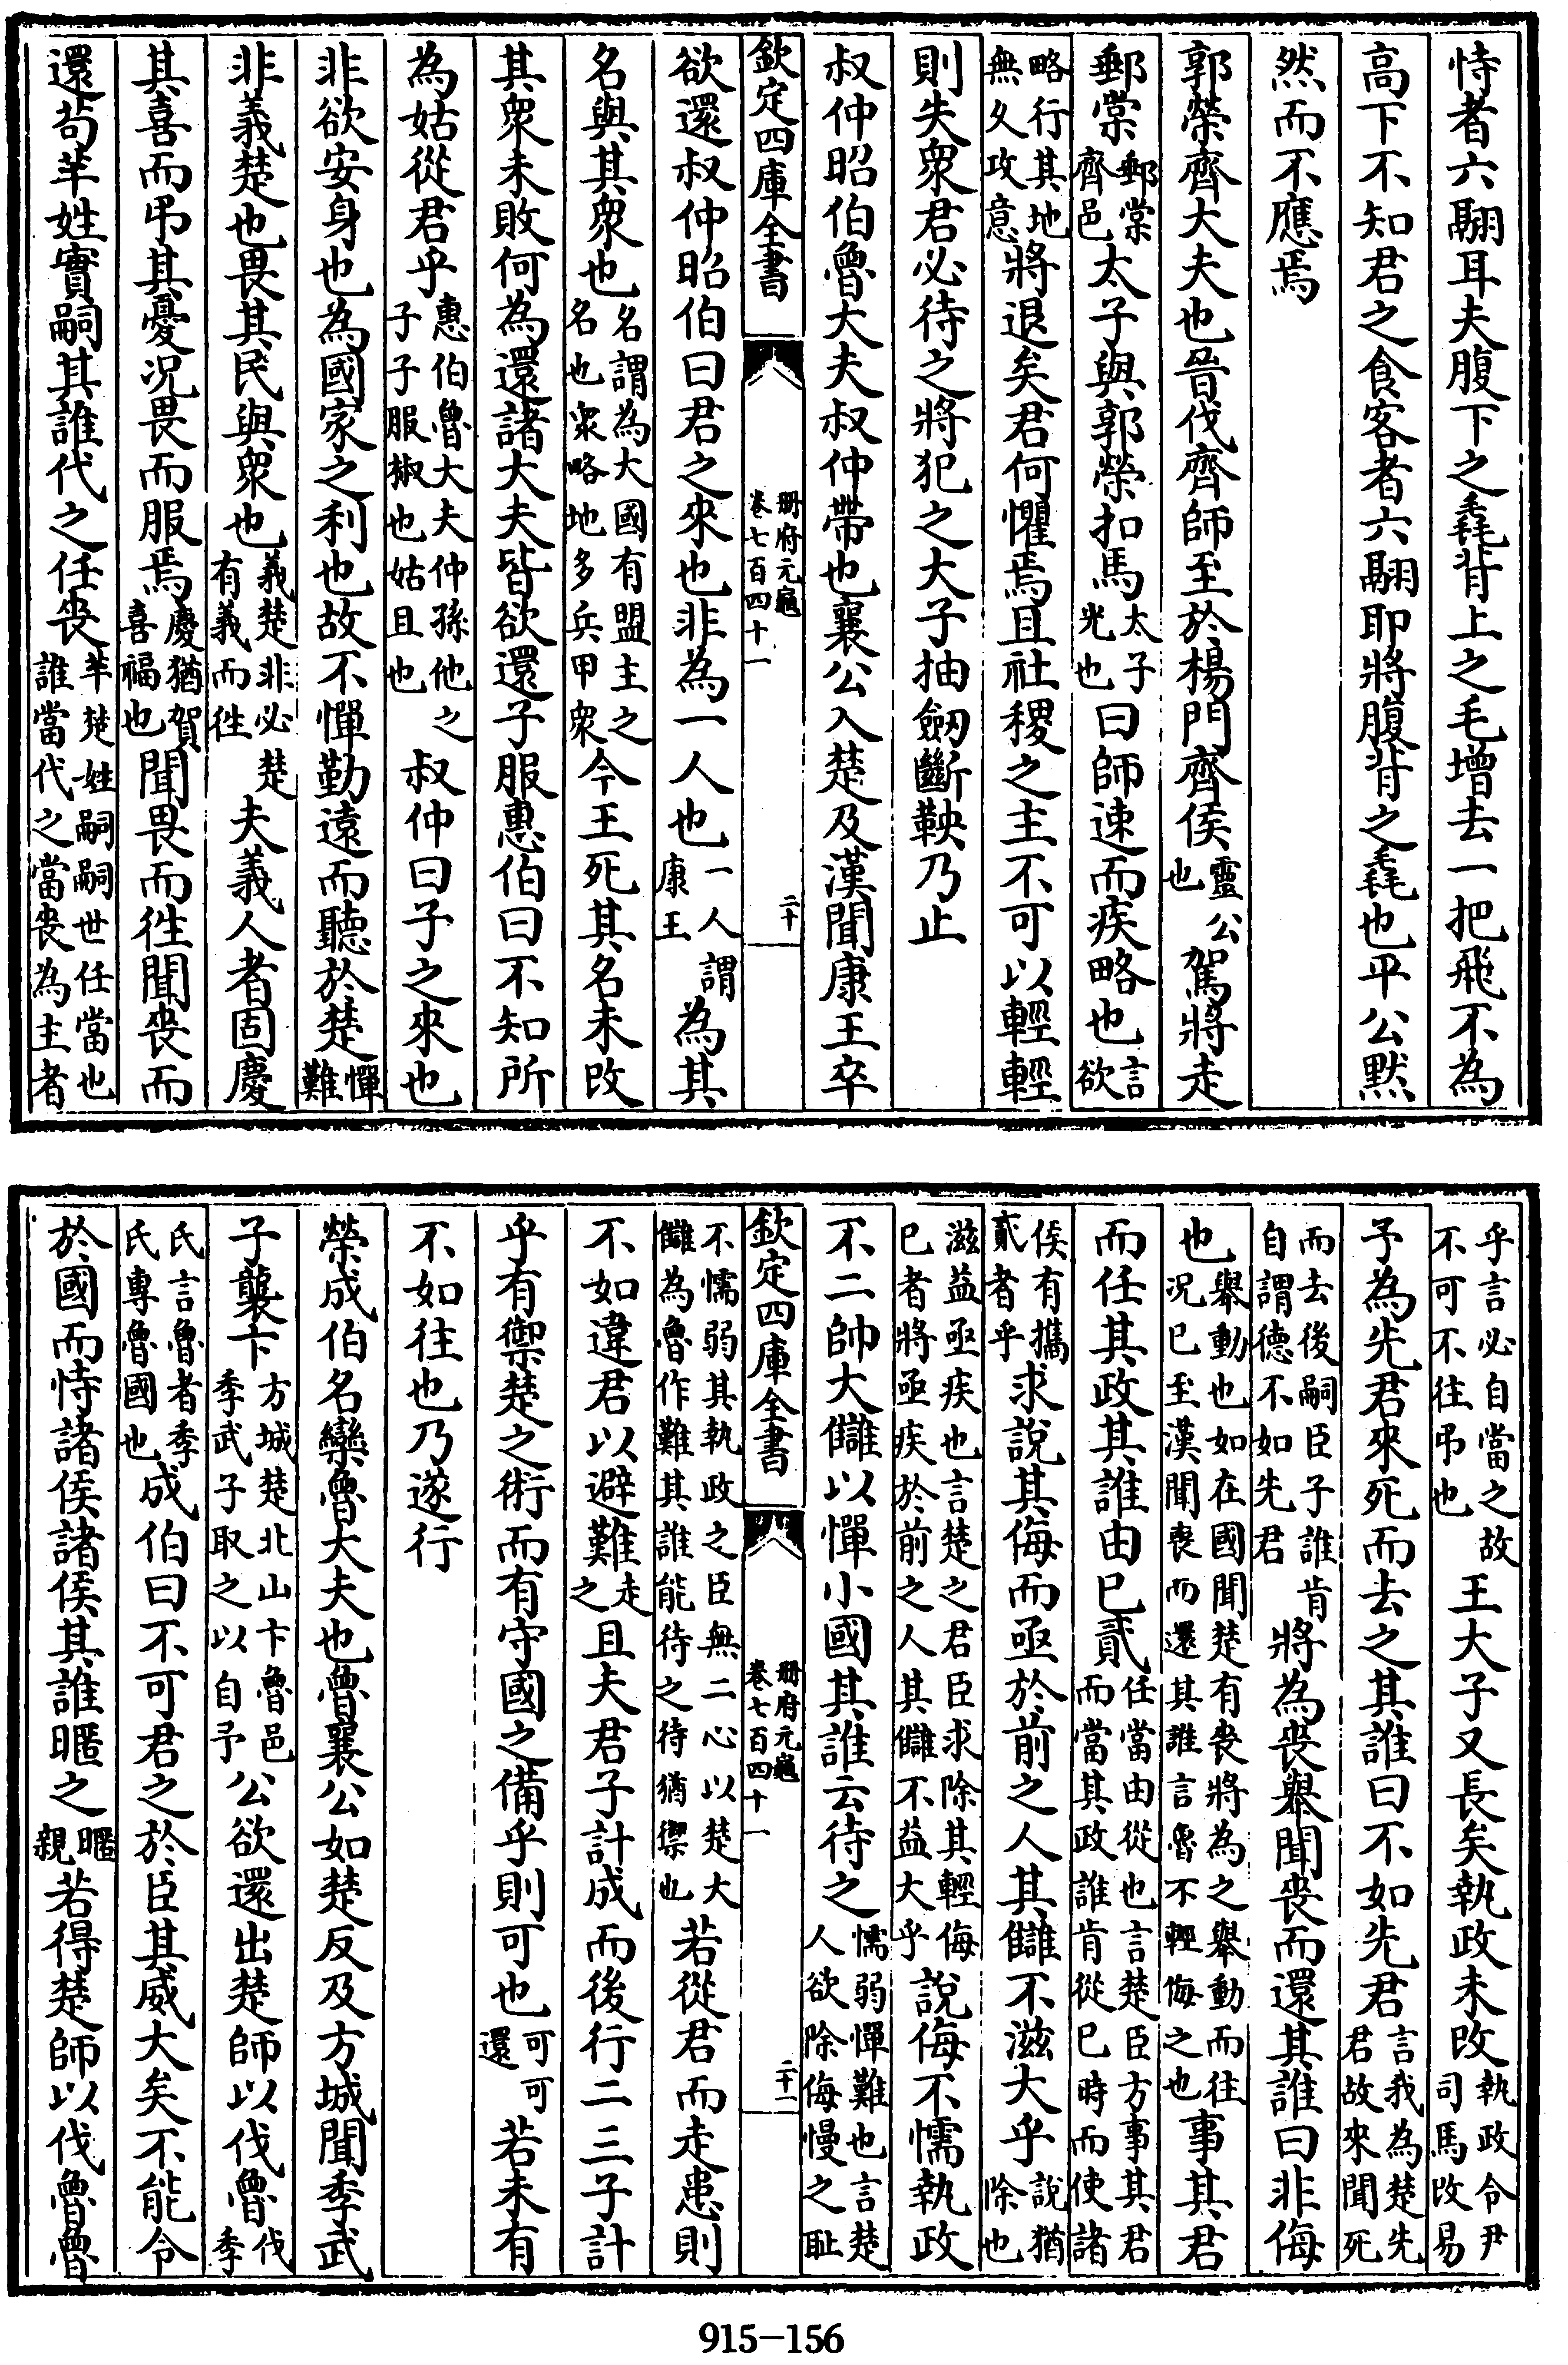 恃者六翮耳夫腹下之毳背上之毛增去一把飛不為
高下不知君之食客者六翮耶將腹背之毳也平公黙
然而不應焉
郭榮齊大夫也晉伐齊師至於楊門齊侯靈公也駕將走
郵棠郵棠齊邑太子與郭榮扣馬太子光也曰師速而疾略也言欲
略行其地無久攻意將退矣君何懼焉且社稷之主不可以輕輕
則失衆君必待之將犯之大子抽劒斷鞅乃止
叔仲昭伯魯大夫叔仲帶也襄公入楚及漢聞康王卒
欽定四庫全書 册府元龜 卷七百四十一 二十
欲還叔仲昭伯曰君之來也非為一人也一人謂康王為其
名與其衆也名謂為大國有盟主之名也衆略地多兵甲衆今王死其名未改
其衆未敗何為還諸大夫皆欲還子服惠伯曰不知所
為姑從君乎惠伯魯大夫仲孫他之子子服椒也姑且也叔仲曰子之來也
非欲安身也為國家之利也故不憚勤遠而聽於楚憚難
非義楚也畏其民與衆也義楚非必楚有義而徃夫義人者固慶
其喜而吊其憂况畏而服焉慶猶賀喜福也聞畏而徃聞喪而
還茍芈姓實嗣其誰代之任喪芈楚姓嗣嗣世任當也誰當代之當喪為主者
乎言必自當之故不可不往吊也王大子又長矣執政未改執政令尹司馬改易
子為先君來死而去之其誰曰不如先君言我為楚先君故來聞死
而去後嗣臣子誰肯自謂德不如先君將為喪舉聞喪而還其誰曰非侮
也舉動也如在國聞楚有喪將為之舉動而往况已至漢聞喪而還其誰言魯不輕侮之也事其君
而任其政其誰由已貳任當由從也言楚臣方事其君而當其政誰肯從已時而使諸
侯有攜貳者乎求說其侮而亟於前之人其讎不滋大乎說猶除也
滋益亟疾也言楚之君臣求除其輕侮已者將亟疾於前之人其讎不益大乎說侮不懦執政
不二帥大讎以憚小國其誰云待之懦弱憚難也言楚人欲除侮慢之耻
欽定四庫全書 册府元龜 卷七百四十一 二十一
不懦弱其執政之臣無二心以楚大讎為魯作難其誰能待之待猶禦也若從君而走患則
不如違君以避難走之且夫君子計成而後行二三子計
乎有禦楚之術而有守國之備乎則可也可可還若未有
不如往也乃遂行
榮成伯名欒魯大夫也魯襄公如楚反及方城聞季武
子襲卞方城楚北山卞魯邑季武子取之以自予公欲還出楚師以伐魯伐季
氏言魯者季氏專魯國也成伯曰不可君之於臣其威大矣不能令
於國而恃諸侯諸侯其誰暱之暱親若得楚師以伐魯魯
915-156